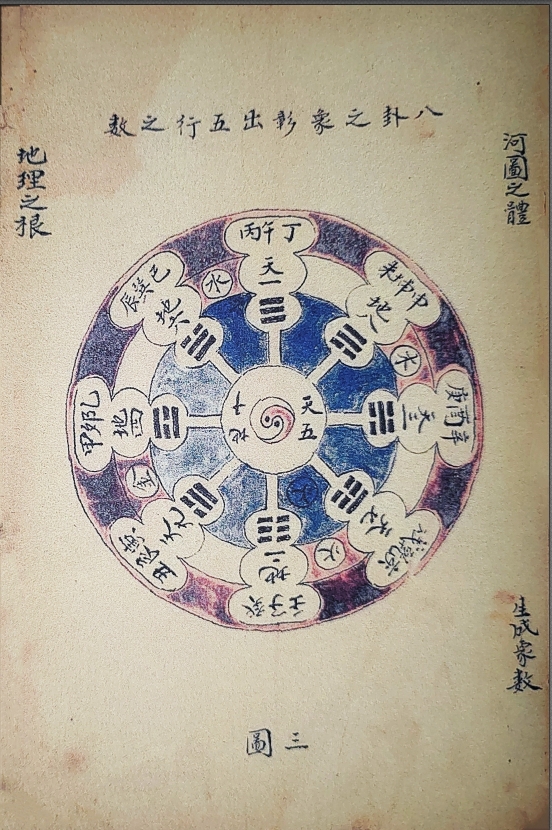 八卦之象彰出五行之數
河圖之體
地理之根
丙午丁
天一
水
未坤申
地八
木
庚酉辛
天三
天五
地十
辰巽巳
地六
甲卯乙
地四
金
天九
火
地二
壬子癸
生成象數
圖三